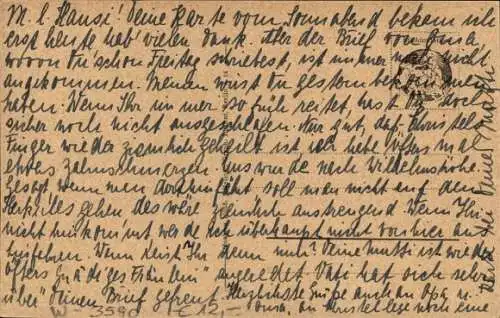 M. l. Hansi! Deine Karte vom Sonnabend bekam ich
erst heute hab' vielen Dank. Aber der Brief von Oma
wovon Du schon Freitag schriebest, ist immer noch nicht
angekommen. Meinen wirst Du gestern bekommen
haben. Wenn Ihr immer so früh reitet hast Du doch
sicher noch nicht ausgeschlafen. Nur gut, daß Christels
Finger wieder ziemlich geheilt ist ich habe öfters mal
etwas Zahnschmerzen. Uns wurde nach Wilhelmshöhe
gesagt, wenn man dort soll man nicht auf den
Herkules gehen das wäre ziemlich anstrengend. Wenn Ihr
nicht hinkommt werde ich überhaupt nicht vorher an-
Wann reist Ihr denn nun? Deine Mutti ist wieder
öfters "Gnädiges Fräulein" angeredet. Vati hat sich sehr
über Deinen Brief gefreut. Herzlichste Grüße auch an Opa u.
Oma, an Christel lege noch eine
W-3590 €12,-